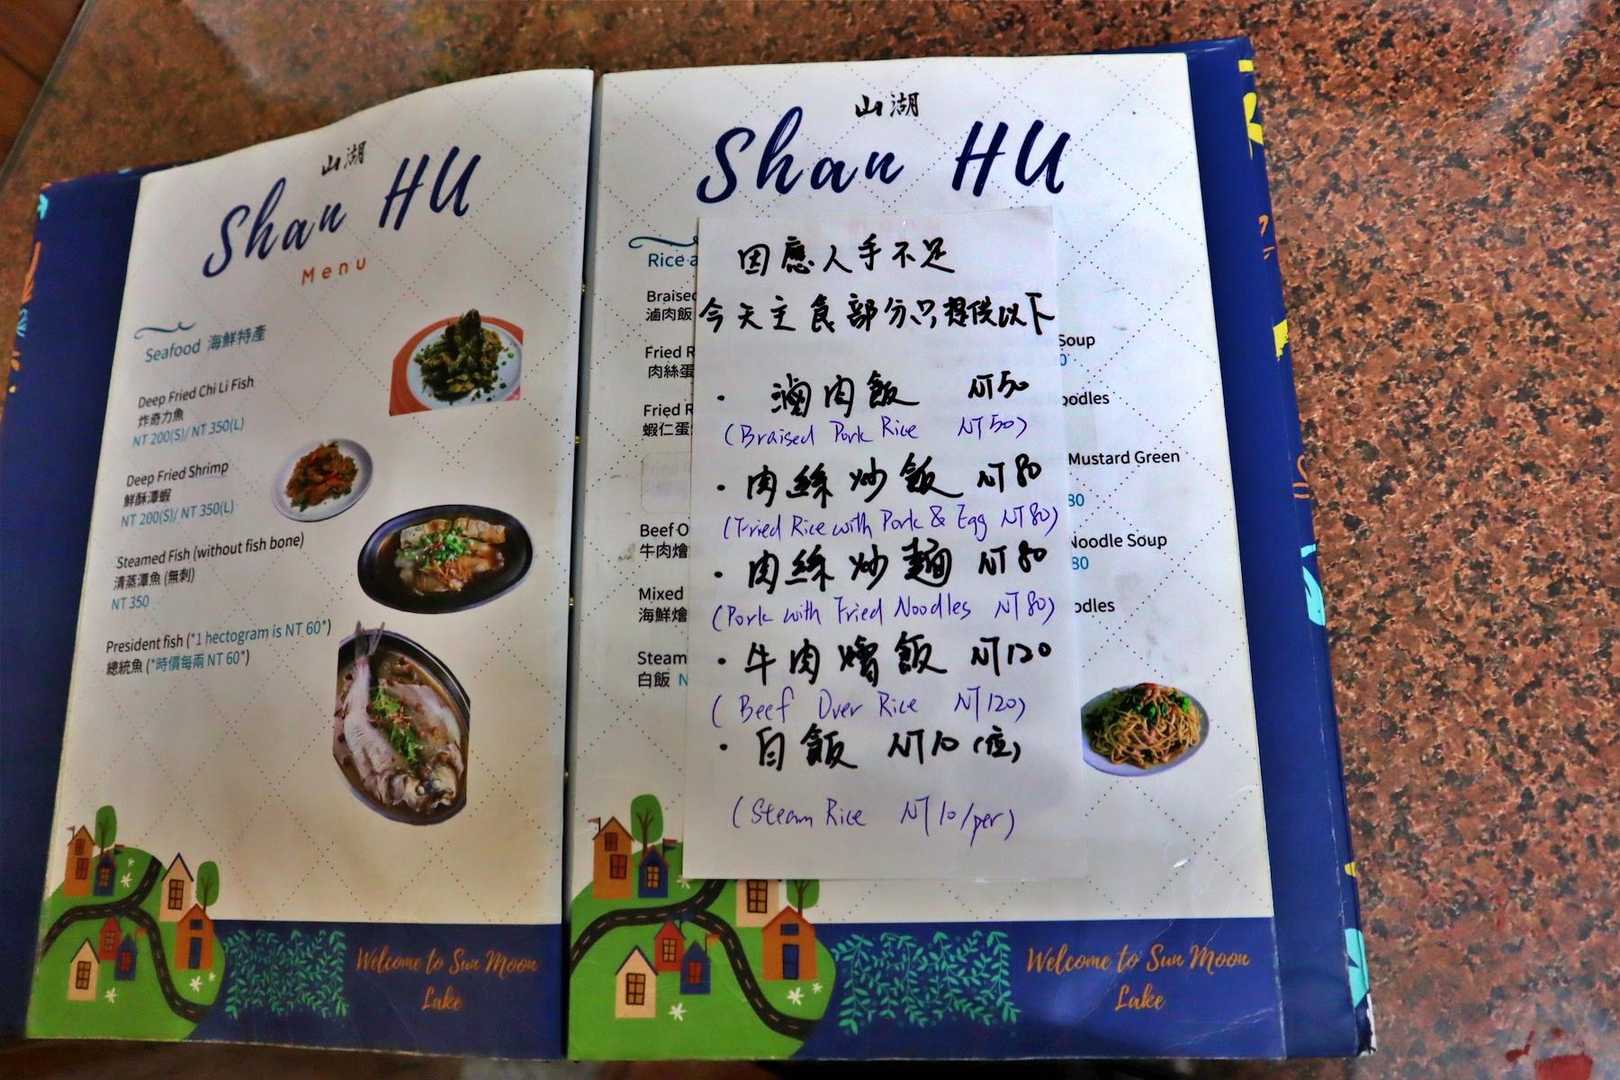 山湖
Shan HU
Menu
Seafood 海鮮特產
Deep Fried Chi Li Fish
炸奇力魚
NT 200(S)/ NT 350(L)
Deep Fried Shrimp
鮮酥潭蝦
NT 200(S)/ NT 350(L)
Steamed Fish (without fish bone)
清蒸潭魚 (無刺)
NT 350
President fish ("1 hectogram is NT 60")
總統魚 ("時價每兩 NT 60")
Welcome to Sun Moon
Lake
山湖
Shan HU
Rice
滷肉飯
Fried
肉絲蛋
Fried
蝦仁蛋
Beef
牛肉燴
Mixed
海鮮燴
Steam
白飯
因應人手不足
今天主食部分只提供以下
· 滷肉飯 NT50
(Braised Pork Rice NT50)
· 肉絲炒飯 NT80
(Fried Rice with Pork & Egg NT80)
· 肉絲炒麵 NT80
(Pork with Fried Noodles NT80)
· 牛肉燴飯 NT120
(Beef Over Rice NT120)
· 白飯 NT10 (位)
(Steam Rice NT10/per)
Soup
Mustard Green
80
Noodle Soup
80
Welcome to Sun Moon
Lake